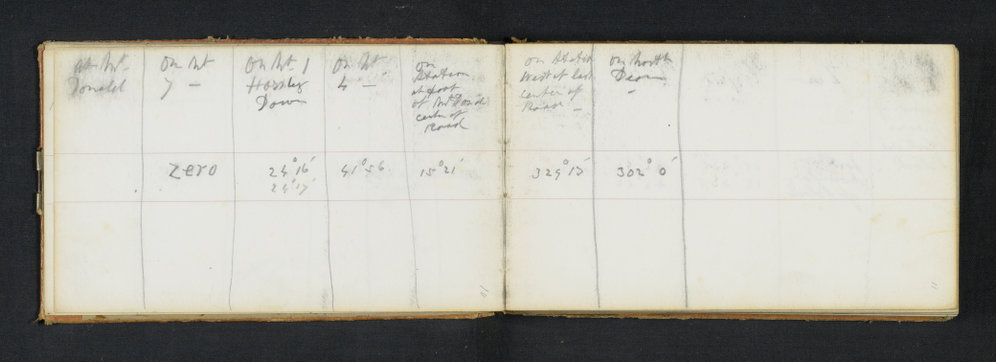 At Mt.
Donald
On Mt
7 -
On Mt 1
Horsley
Down
On Mt
4 -
on
Station
at foot
of Mt Donald
center of
Road
on Station
West of last
center of
Road -
on North
-
zero
24° 16'
24° 17'
41° 56
15° 21'
329° 15'
302° 0'
10
11